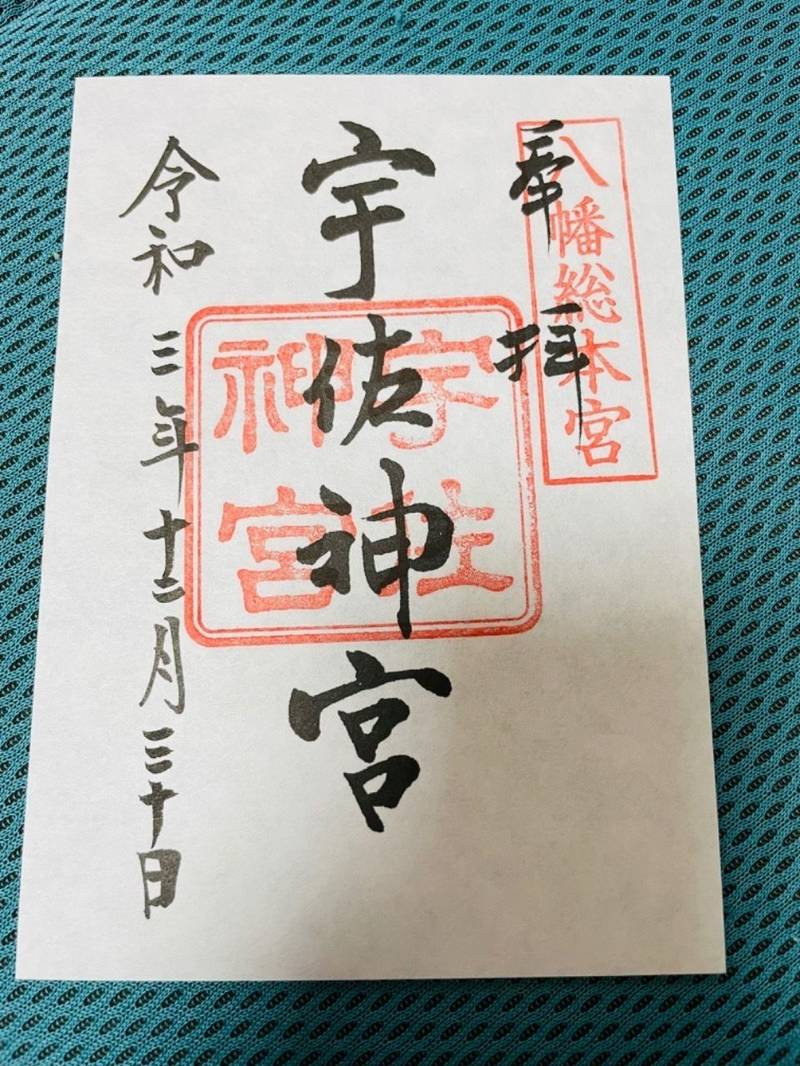 八幡総本宮
奉拝
宇佐神宮
宇佐
神宮
令和三年十二月三十日